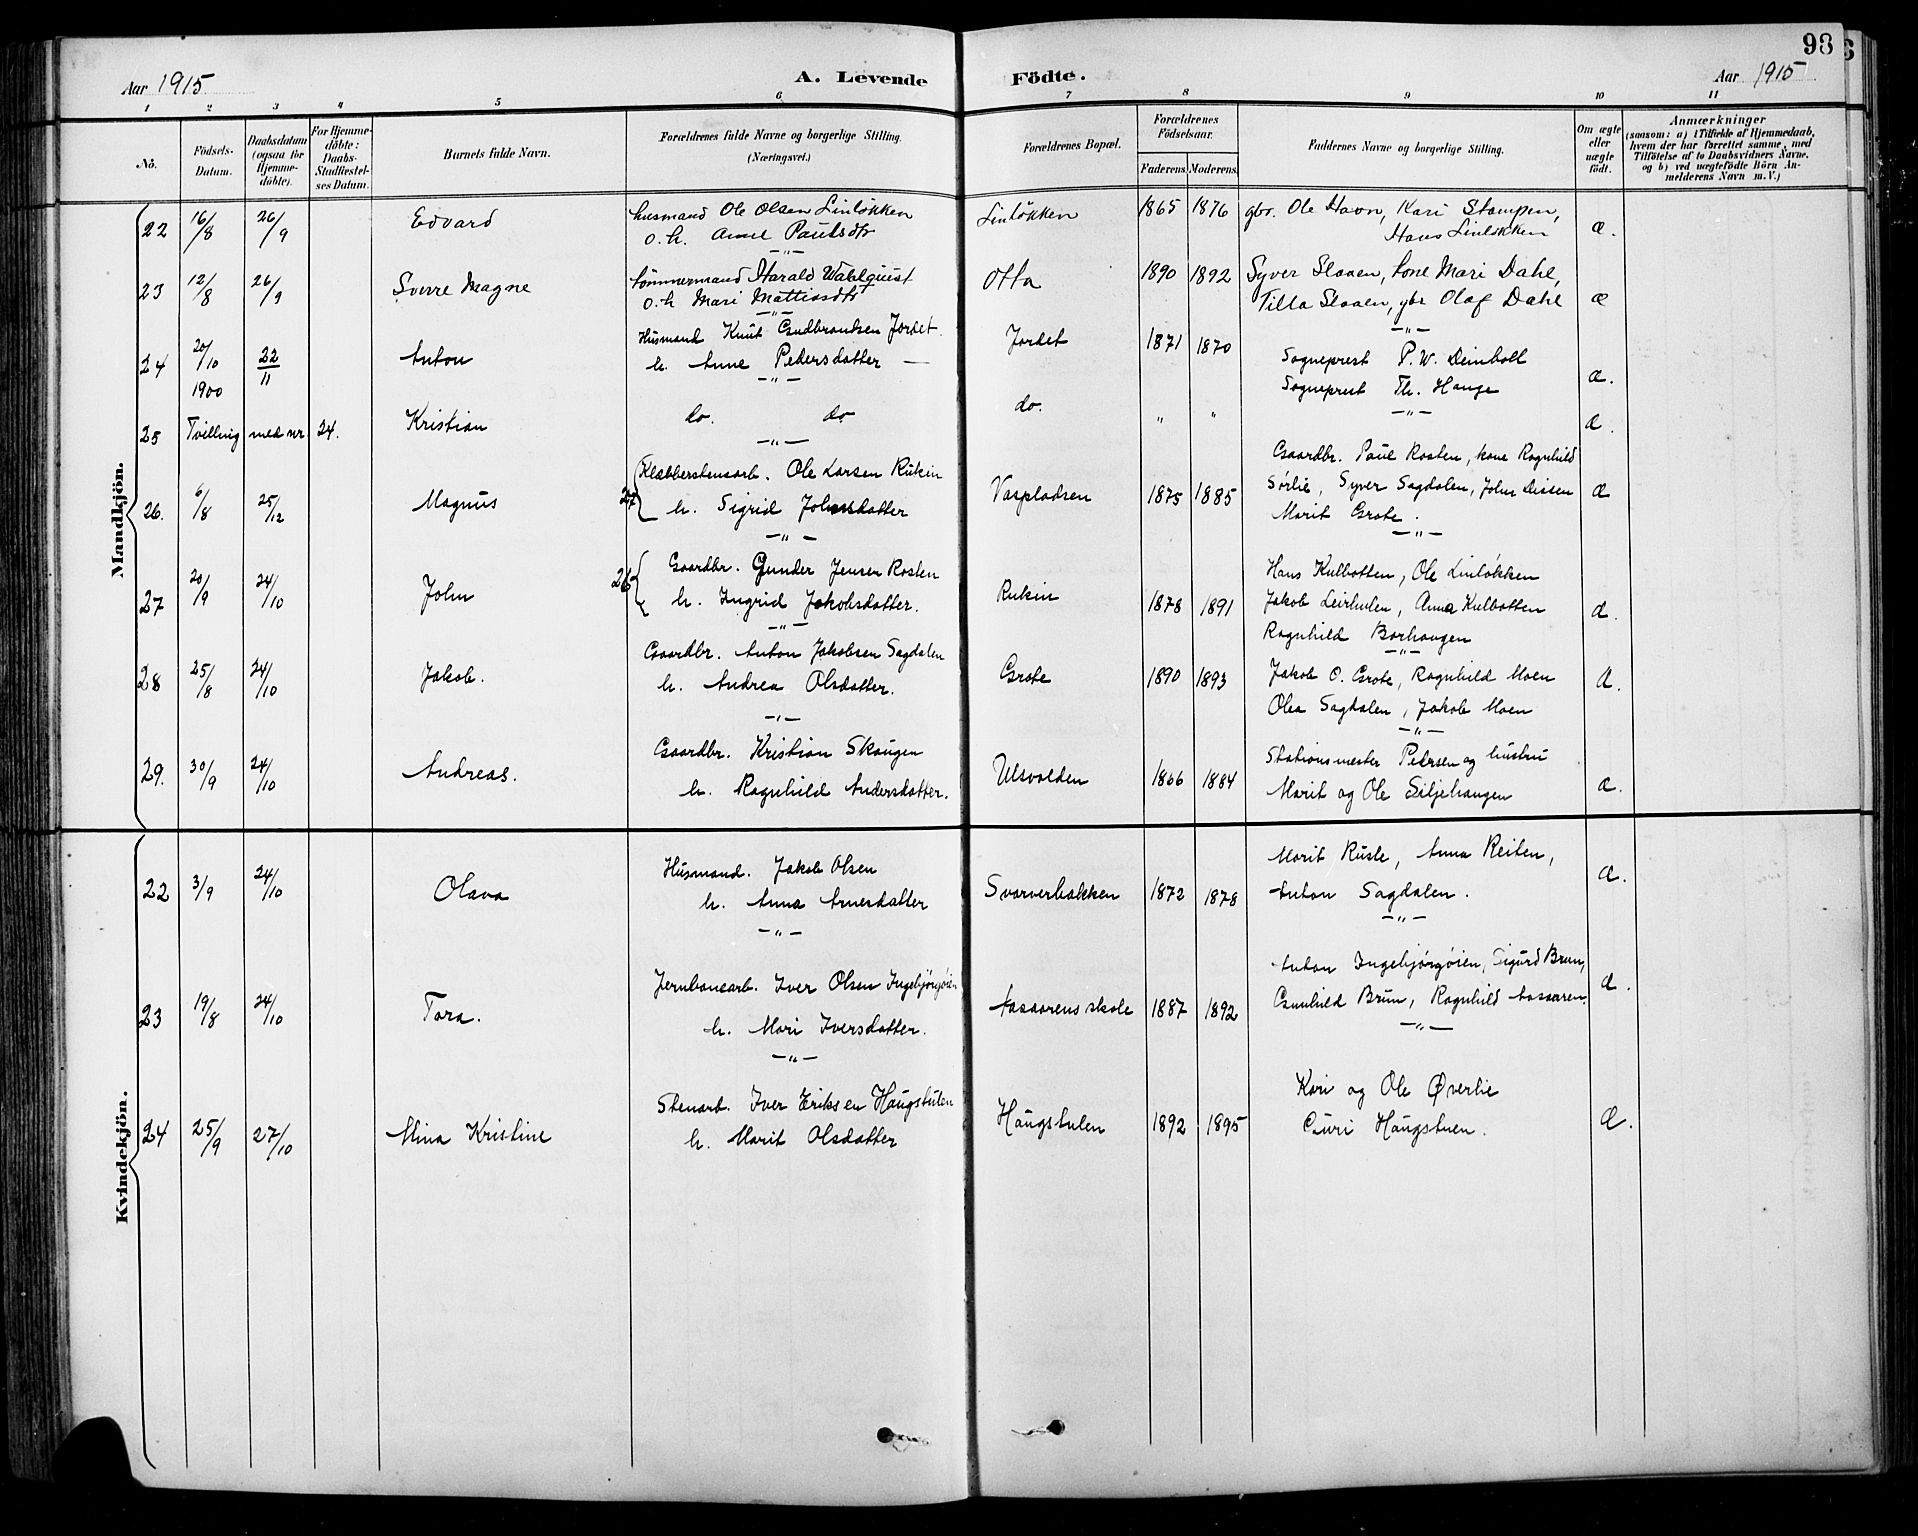 98
Aar 1915
A. Levende Födte.
Aar 1915
1 2 3 4 5 6 7 8 9 10 11
No.
Födsels-Datum.
Daabsdatum (ogsaa for Hjemme-döbte).
For Hjemme-döbte: Daabs-Stadfæstel-ses Datum.
Barnets fulde Navn.
Forældrenes fulde Navne og borgerlige Stilling.
(Næringsvei.)
Forældrenes Bopæl.
Forældrenes Födselsaar.
Faderens Moderens
Faddernes Navne og borgerlige Stilling.
Om ægte eller uægte födt.
Anmærkninger
(saasom: a) i Tilfælde af Hjemmedaab,
hvem der har forrettet samme, med
Tilföielse af to Daabsvidners Navne,
og b) ved uægtefödte Börn An-
melderens Navn m. V.)
Mandkjön.
22 16/8 26/9 Edvard husmand Ole Olsen Linløkken Linløkken 1865 1876 gbr. Ole Havn, Kari Stampen, æ.
o. h. Anne Paulsdtr Hans Linløkken
—"—
23 12/8 26/9 Sverre Magne tømmermand Harald Wahlquist Otta 1890 1892 Syver Slaaen, kone Mari Dahl, æ
o. h Mari Mattisdtr Tilla Slaaen, gbr Olaf Dahl
—"— —"—
24 20/10 1900 22/11 Anton Husmand Knut Gudbrandsen Jordet Jordet 1871 1870 Sogneprest P. W. Deinboll æ.
h. Anne Pedersdatter — Sogneprest Th. Hauge
—"— —"—
25 Tvilling med nr 24. Kristian do. do do. " " æ.
—"—
26. 6/8 25/12 Magnus 27 Klæbberstensarb. Ole Larsen Rukin Vasplassen 1875 1885 Gaardbr. Paul Rosten, kone Ragnhild
h. Sigrid Johnsdatter Sørlie, Syver Sagdalen, John Dissen æ
Marit Grote.
—"— —"—
27 20/9 24/10 John 26 Gaardbr. Gunder Jensen Rosten Rukin 1878 1891 Hans Kulbotten, Ole Linløkken
h. Ingrid Jakobsdatter. Jakob Leirhulen, Anna Kulbotten æ.
—"— Ragnhild Borhaugen
—"—
28 25/8 24/10 Jakob. Gaardbr. Anton Jakobsen Sagdalen Grote 1890 1893 Jakob O. Grote, Ragnhild Moen æ.
h. Andrea Olsdatter. Olea Sagdalen, Jakob Moen
—"— —"—
29. 30/9 24/10 Andreas. Gaardbr. Kristian Skaugen Ulsvolden 1866 1884 Stationsmester Pedersen og hustru
h. Ragnhild Andersdatter. Marit og Ole Siljehaugen æ.
Kvindekjön.
22 3/9 24/10 Olava Husmand. Jakob Olsen Svarverbakken 1872 1878 Marit Rusle, Anna Reiten, æ.
h. Anna Arnesdatter Anton Sagdalen.
—"— —"—
23 19/8 24/10 Tora. Jernbanearb. Iver Olsen Ingebjørgøien Aasaarens skole 1887 1892 Anton Ingebjørgøien, Sigurd Brun,
h. Mari Iversdatter. Gunhild Brun, Ragnhild Aasaaren. æ.
—"— —"—
24 25/9 27/10 Mina Kristine Stenarb. Iver Eriksen Haugstulen Haugstulen 1892 1895 Kari og Ole Øverlie
h. Marit Olsdatter Guri Haugstuen. æ.